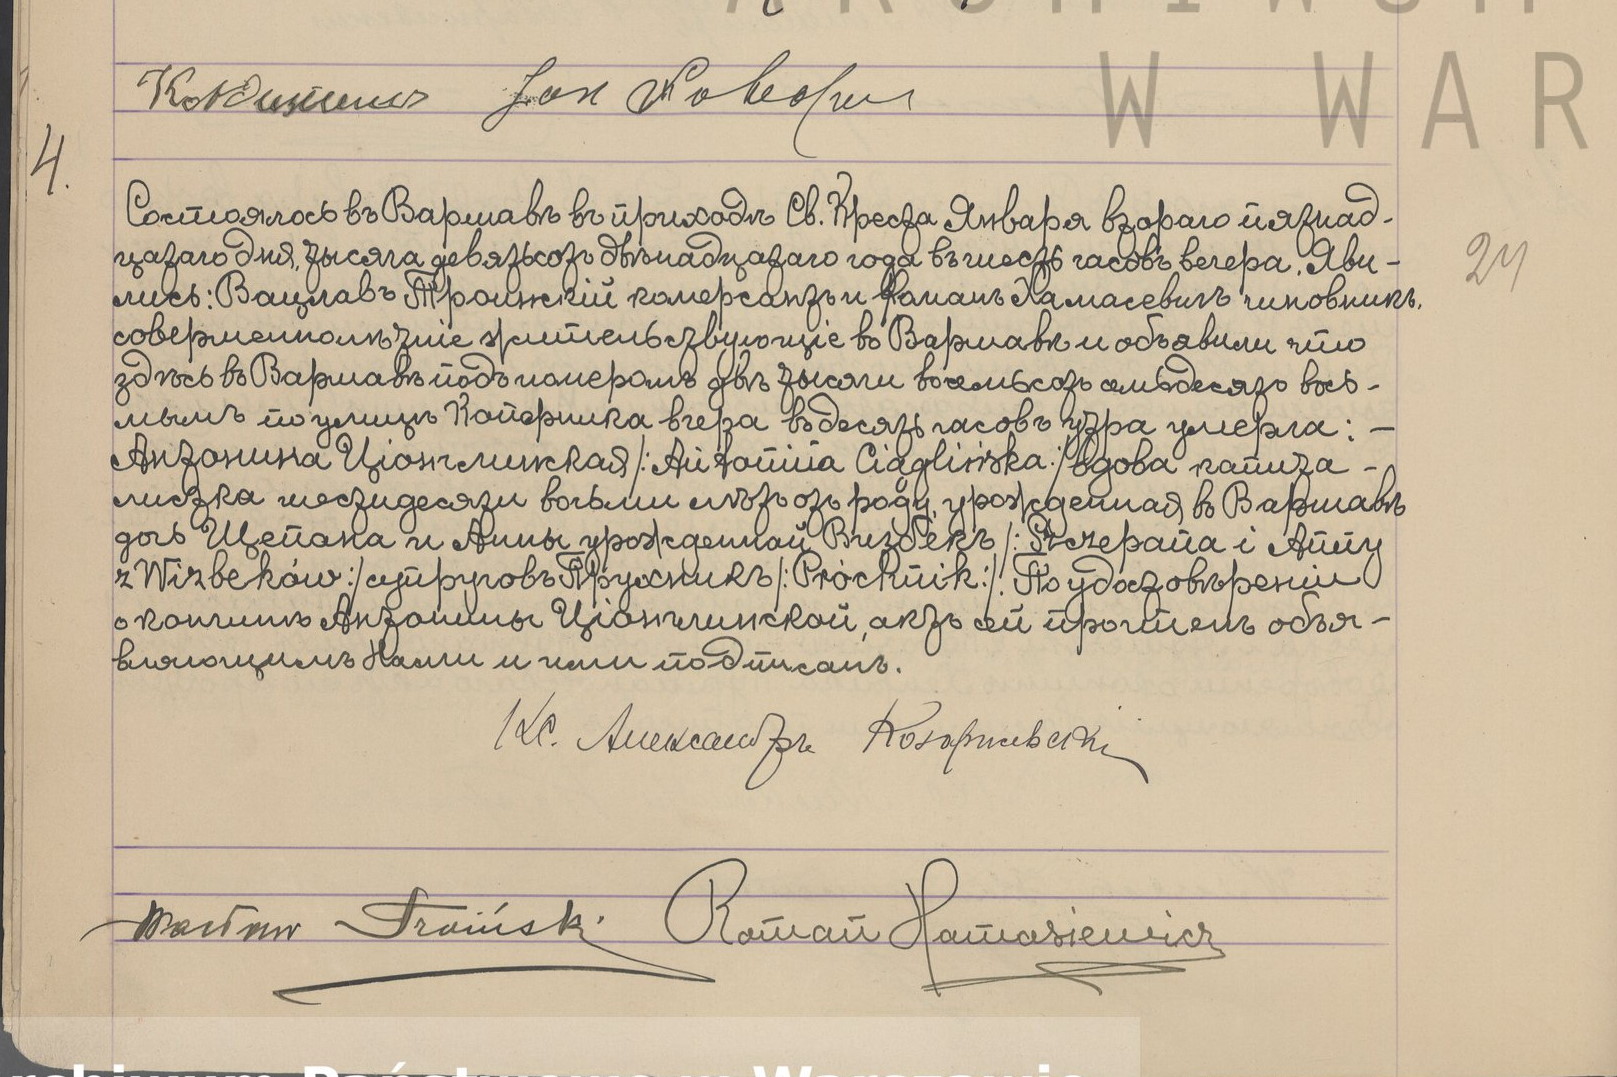 W WAR
Jan
4.
Состоялось въ Варшавѣ въ приходѣ Св. Креста Января втораго пятнад-
цатаго дня, тысяча девятьсотъ двѣнадцатаго года въ шесть часовъ вечера. Яви-
24
лись: Вацлавъ Троинскій комерсантъ и Романъ Хамасевичъ чиновникъ,
совершеннолѣтніе жительствующіе въ Варшавѣ и объявили что
здѣсь въ Варшавѣ подъ номеромъ двѣ тысячи восемьсотъ семьдесятъ вось-
мымъ по улицѣ Коперника вчера въ десять часовъ утра умерла: —
Антонина Ціонглинская /: Antonina Ciąglińska :/ вдова капита-
листка шестидесяти восьми лѣтъ отъ роду, урожденная въ Варшавѣ
дочь Щепана и Анны урожденной Визбекъ /: Szczepana i Anny
z Wizbeków :/ супруговъ Прухникъ /: Próchnik :/. По удостовѣреніи
о кончинѣ Антонины Ціонглинской, актъ сей прочтенъ объя-
вляющимъ Нами и ими подписанъ.
Кс. Александръ
Wacław Troiński Roman Hamasiewicz
Archiwum Państwowe w Warszawie